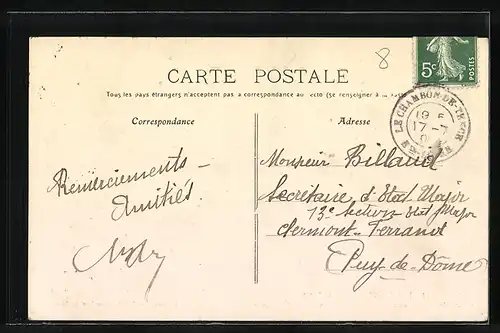 8
5c
POSTES
CARTE POSTALE
Tous les pays étrangers n'acceptent pas la correspondance au recto (Se renseigner à la
Correspondance
Adresse
LE CHAMBON-DE-TENCE
17-7
Remerciements -
Amitiés.
Monsieur Billaud
Secrétaire d'Etat Major
13e Section Etat Major
Clermont-Ferrand
Puy-de-Dôme